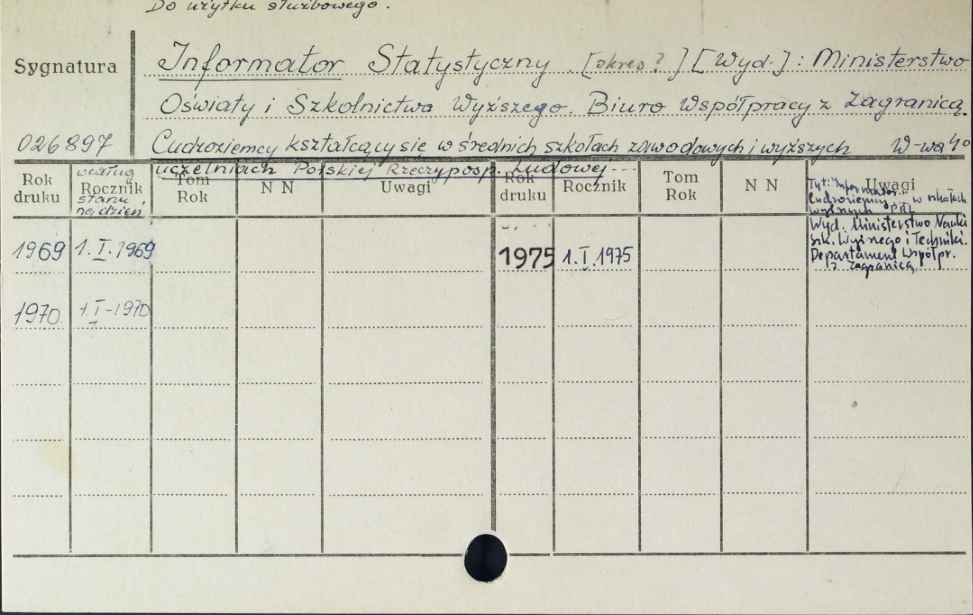 Do użytku służbowego.
Sygnatura
Informator Statystyczny [okres?] [Wyd.]: Ministerstwo
Oświaty i Szkolnictwa Wyższego. Biuro Współpracy z Zagranicą.
026897
Cudzoziemcy kształcący się w średnich szkołach zawodowych i wyższych W-wa 40
uczelniach Polskiej Rzeczyposp. Ludowej...
Rok druku
według
Rocznik
stanu
na dzień
Tom Rok
N N
Uwagi
Rok druku
Rocznik
Tom Rok
N N
Uwagi
Tyt: Informator...
Cudzoziemcy w szkołach
wyższych PRL
Wyd. Ministerstwo Nauki
Szk. Wyższego i Techniki.
Departament Współpr.
z zagranicą
1969 1.I.1969
1975 1.I.1975
1970. 1.I-1970